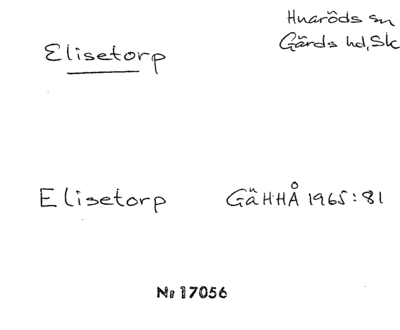 Huaröds sn
Gärds hd, Sk
Elisetorp
Elisetorp GäHHÅ 1965:81
Nr 17056